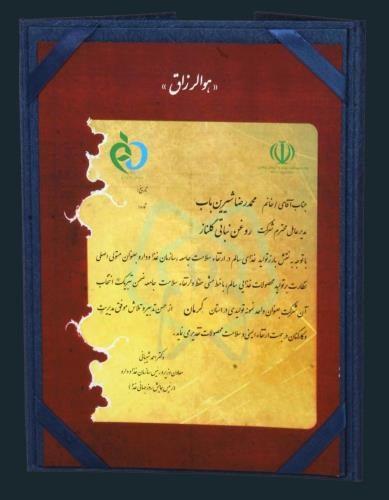 « هوالرزاق »
تاریخ:
شماره:
جناب آقای / خانم محمدرضا شیرین باب
مدیرعامل محترم شرکت روغن نباتی گلناز
با توجه به نقش بارز تولید غذای سالم در ارتقاء سلامت جامعه سازمان غذا و دارو بعنوان متولی اصلی
نظارت بر تولید محصولات غذایی سالم، با خط مشی حفظ و ارتقاء سلامت جامعه ضمن تبریک انتخاب
آن شرکت بعنوان واحد نمونه تولیدی در استان کرمان از حسن تدبیر و تلاش موفق مدیریت
و کارکنان در جهت ارتقاء ایمنی و سلامت محصولات تقدیر می نماید.
دکتر احمد شیبانی
معاون وزیر و رییس سازمان غذا و دارو
(رئیس همایش روز جهانی غذا)